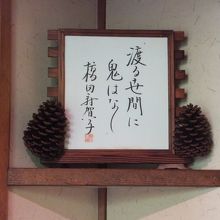 渡る世間に
鬼はなし
橋田壽賀子